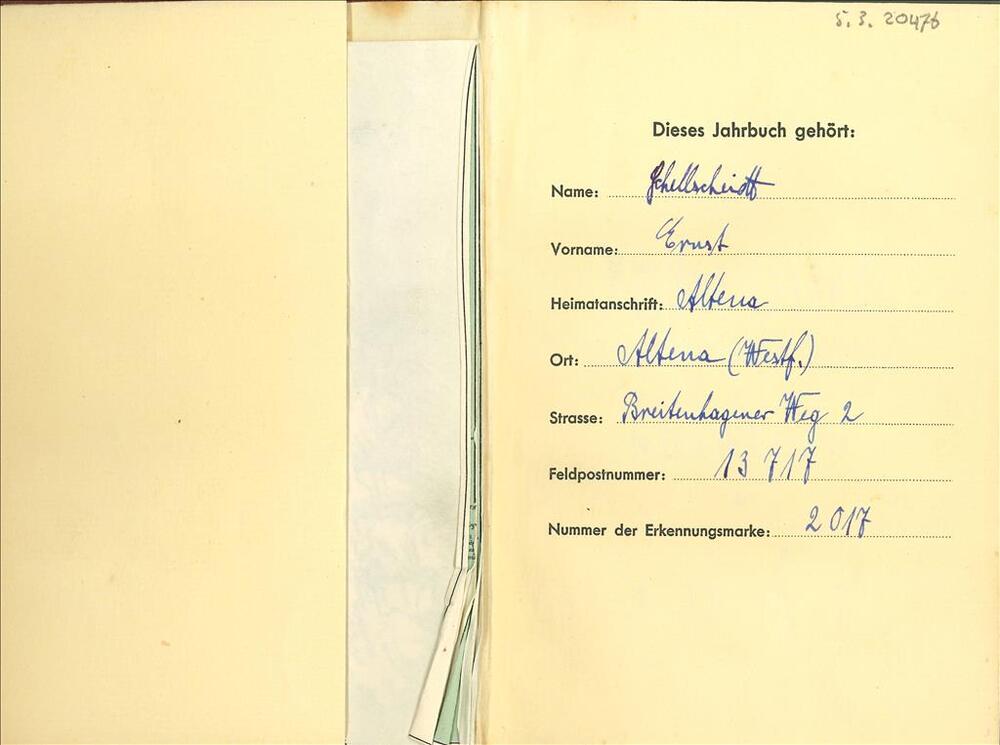 5.3. 20476
Dieses Jahrbuch gehört:
Name: Schellscheidt
Vorname: Ernst
Heimatanschrift: Altena
Ort: Altena (Westf.)
Strasse: Breitenhagener Weg 2
Feldpostnummer: 13 717
Nummer der Erkennungsmarke: 2017